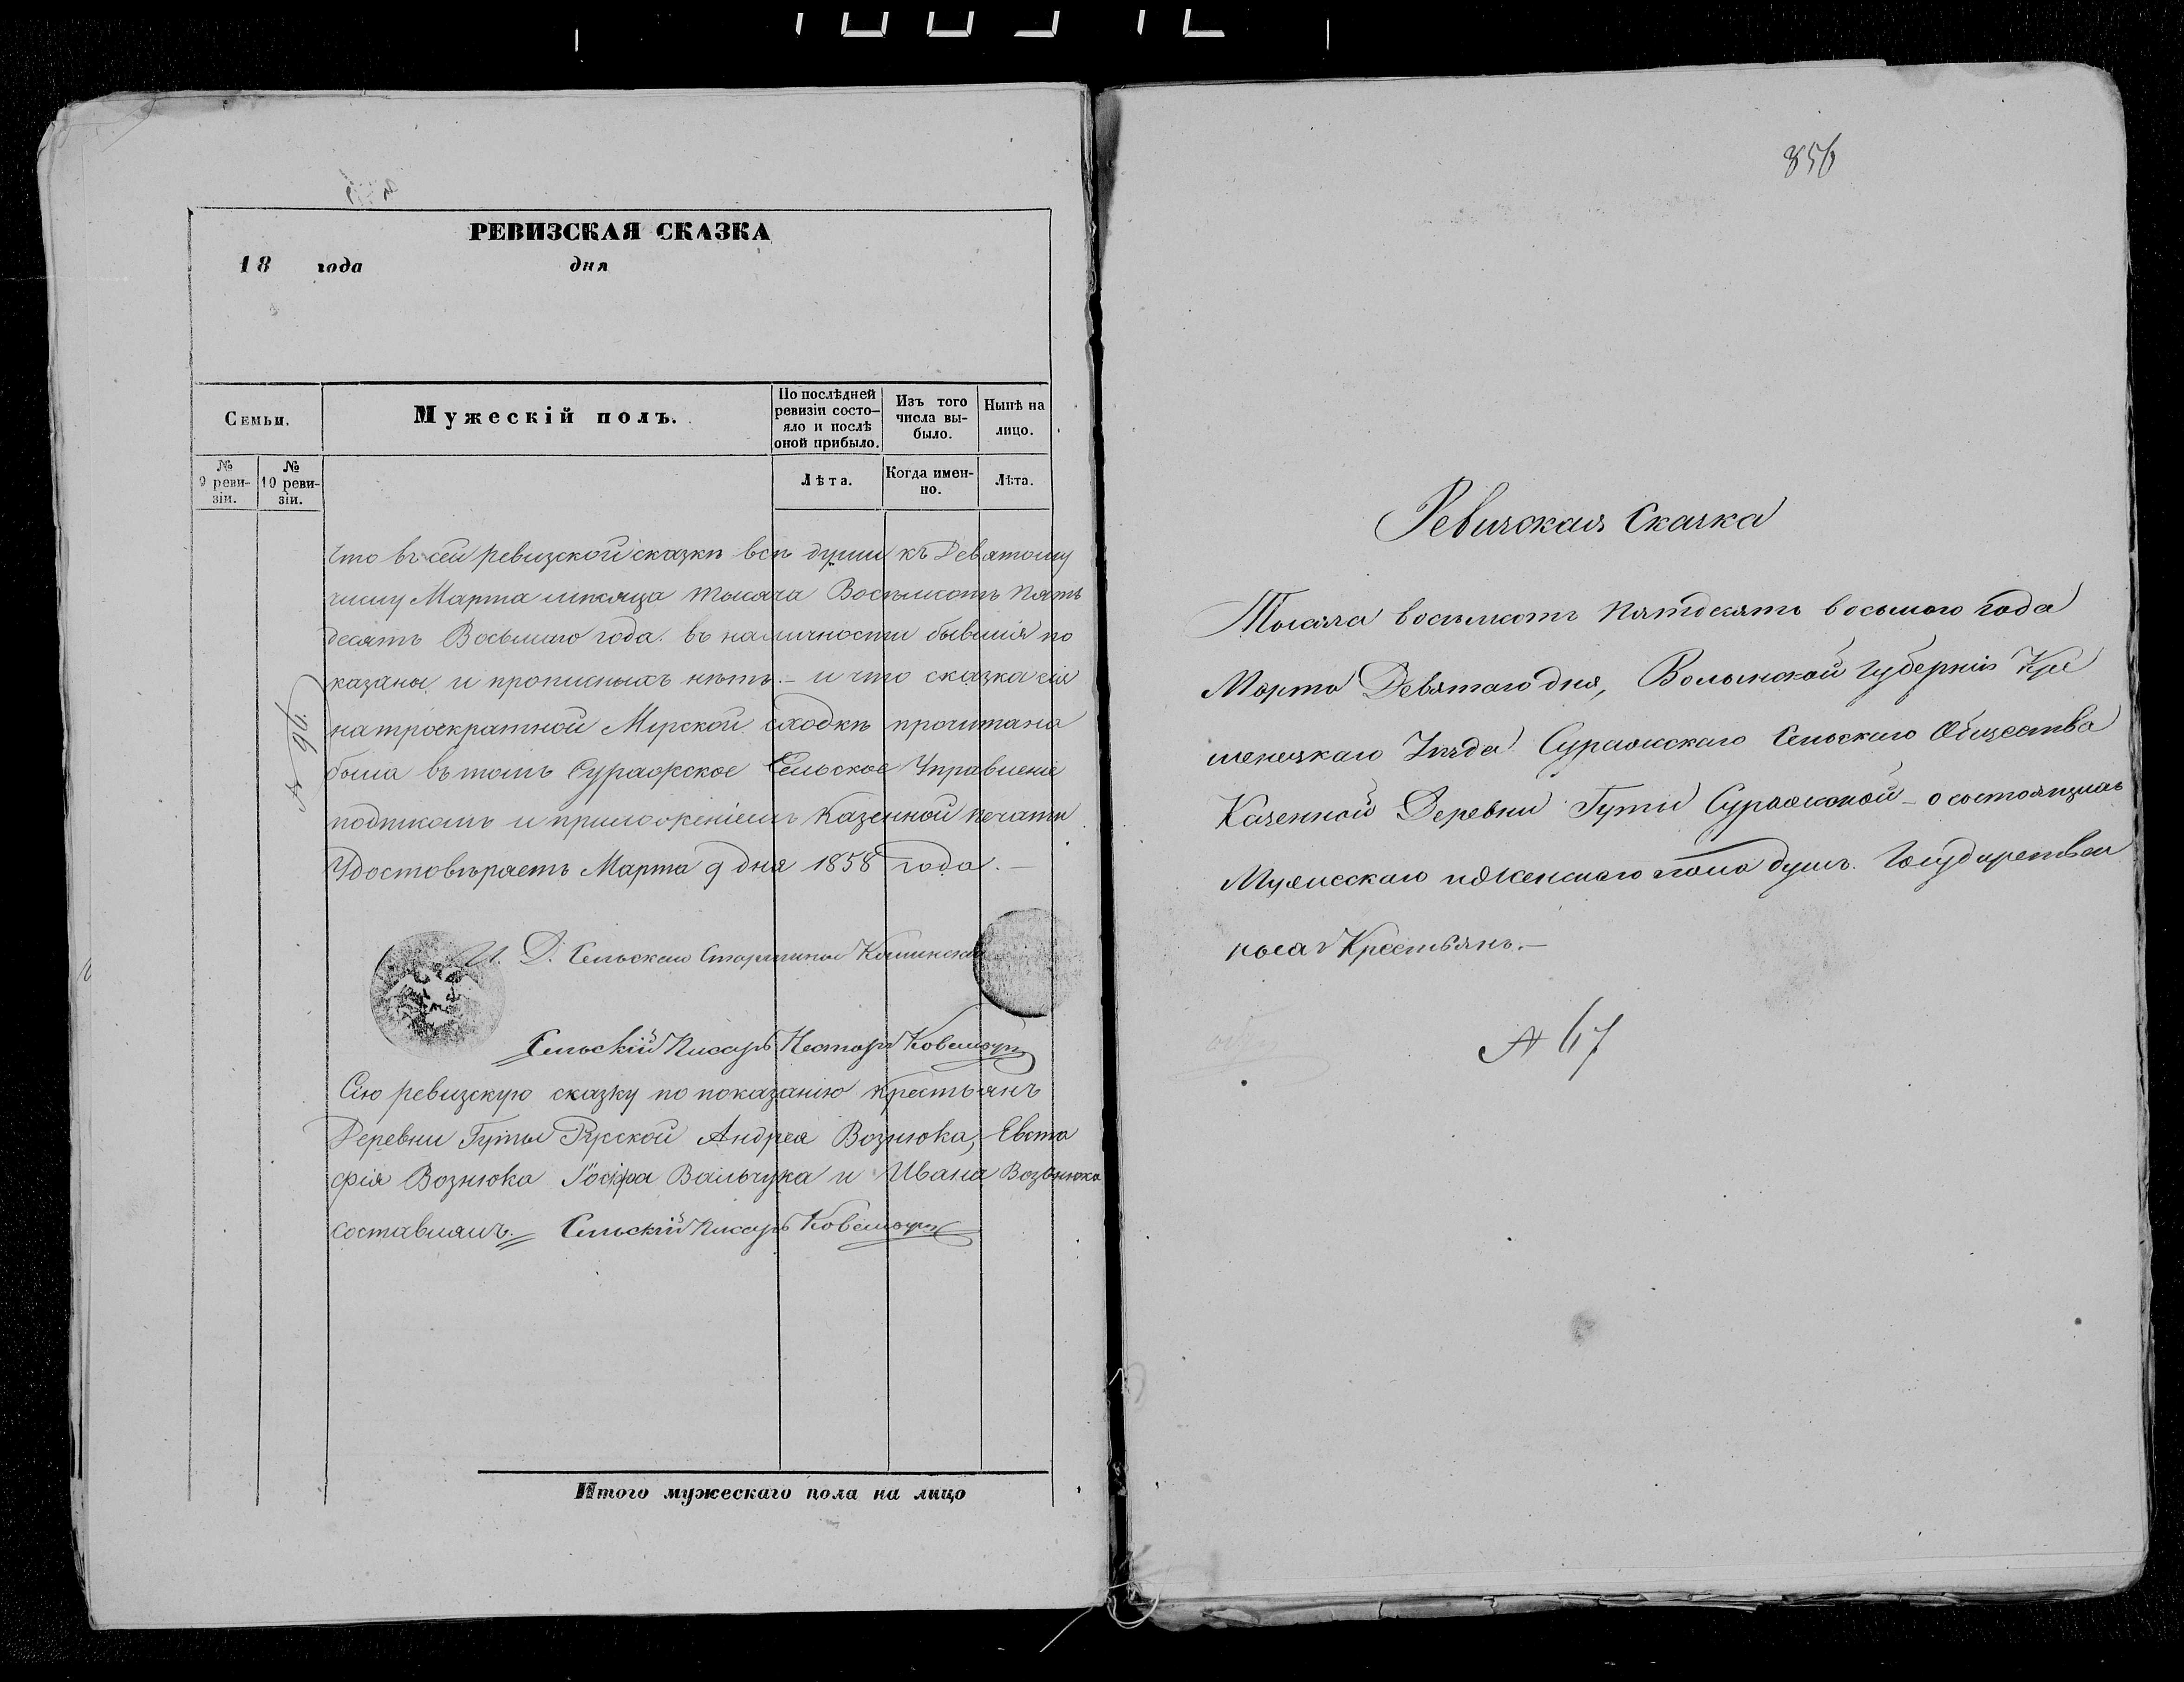 РЕВИЗСКАЯ СКАЗКА
18 года дня
Семьи.
Мужескій полъ.
По послѣдней ревизіи состо-яло и послѣ оной прибыло.
Изъ того числа вы-было.
Нынѣ на лицо.
№ 9 реви-зіи.
№ 10 реви-зіи.
Лѣта.
Когда имен-но.
Лѣта.
Что въ сей ревизской сказкѣ всѣ души къ Девятому
числу Марта мѣсяца тысяча Восемьсотъ пять
десятъ Восьмаго года въ наличности бывшія по
казаны и прописныхъ нѣтъ. – и что сказка сія
на троекратной Мірской сходкѣ прочитана
была въ томъ Суражское Сельское Управленіе
подписомъ и приложеніемъ Казенной печати
Удостовѣряетъ Марта 9 дня 1858 года. –
И. Д. Сельскаго Старшины
Сельскій Писарь Несторъ
Сію ревизскую сказку по показанію крестьянъ
Деревни Гуты Андрея Вознюка, Евста
фія Вознюка Іосифа Вальчука и Ивана Вознюка
составлялъ. Сельскій Писарь
Итого мужескаго пола на лицо
856
Ревизская Сказка
Тысяча восемьсотъ пятдесятъ восьмого года
Марта Девятаго дня, Волынской губерніи Кре
менецкаго Уѣзда Суражскаго Сельскаго Общества
Казенной Деревни Гуты Суражской – о состоящихъ
Мужескаго и Женскаго пола душъ. Государствен
ныхъ Крестьянъ. –
№ 67